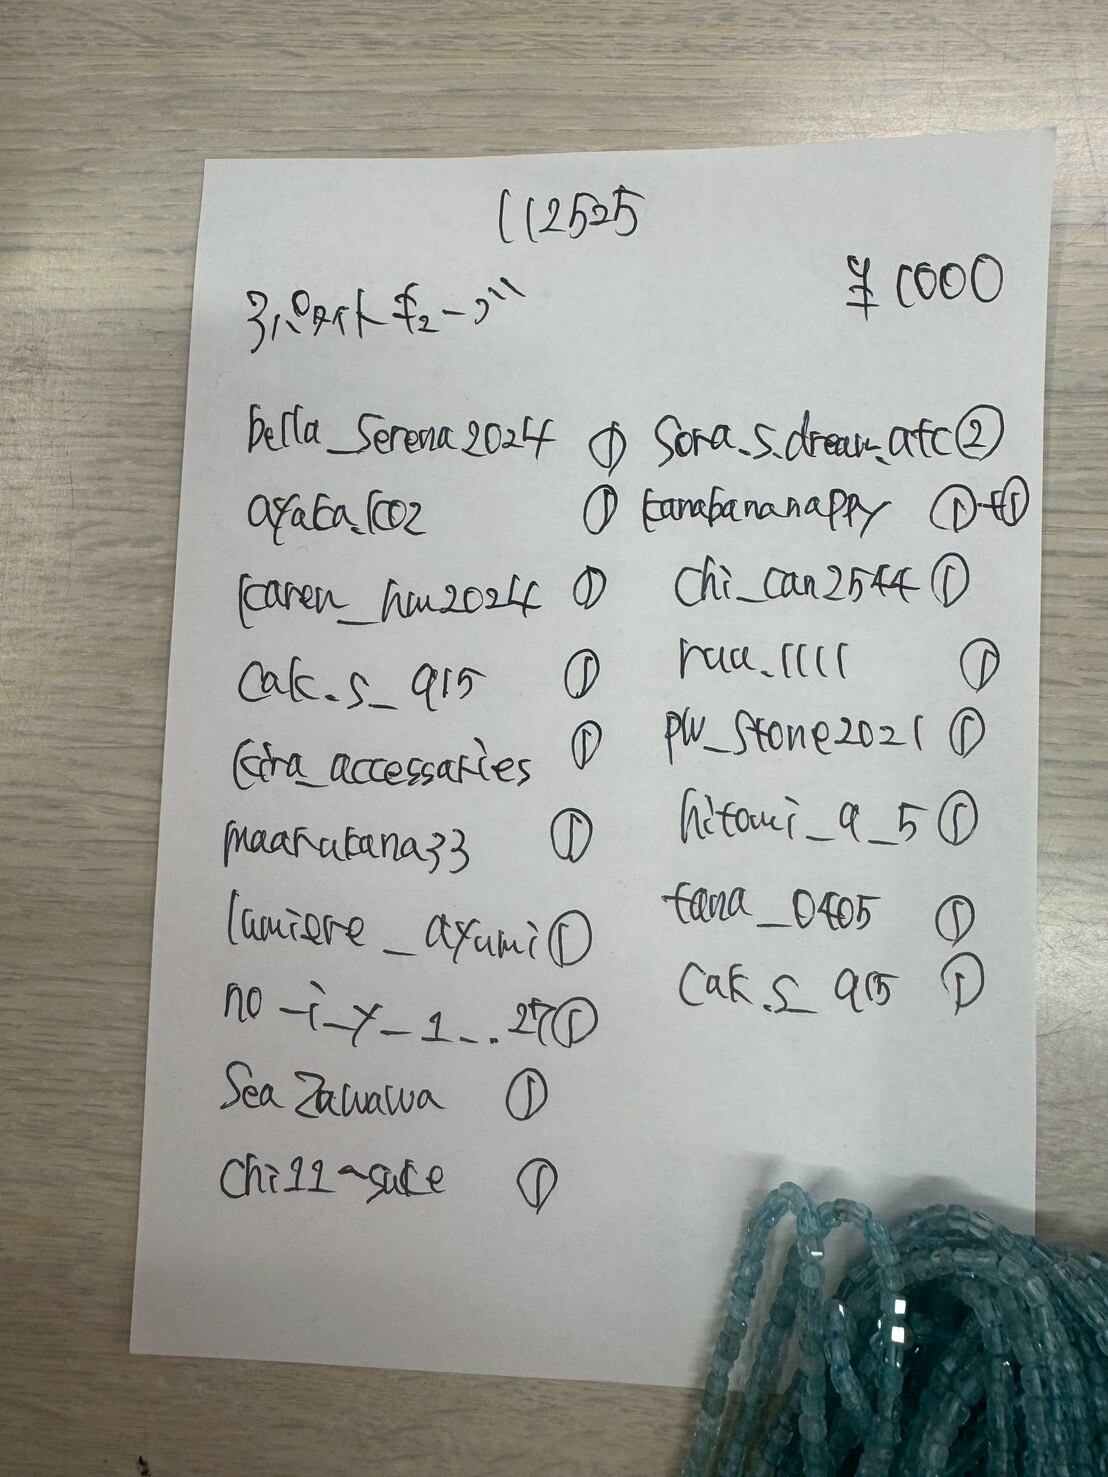 112525
¥1000
アパタイトキューブ
bella_serena2024 ①
ayaka.1c02 ①
karen_hm2024 ①
cak.s_915 ①
kira_accessaries ①
maarukana33 ①
lumiere_ayumi ①
no_i_y_1_..27 ①
Sea Zawawa ①
chi11~suke ①
sora.s.dream.atc ②
kanabananappy ①+①
chi_can2544 ①
ruu.1111 ①
pw_stone2021 ①
hitomi_9_5 ①
tana_0405 ①
cak.s_915 ①